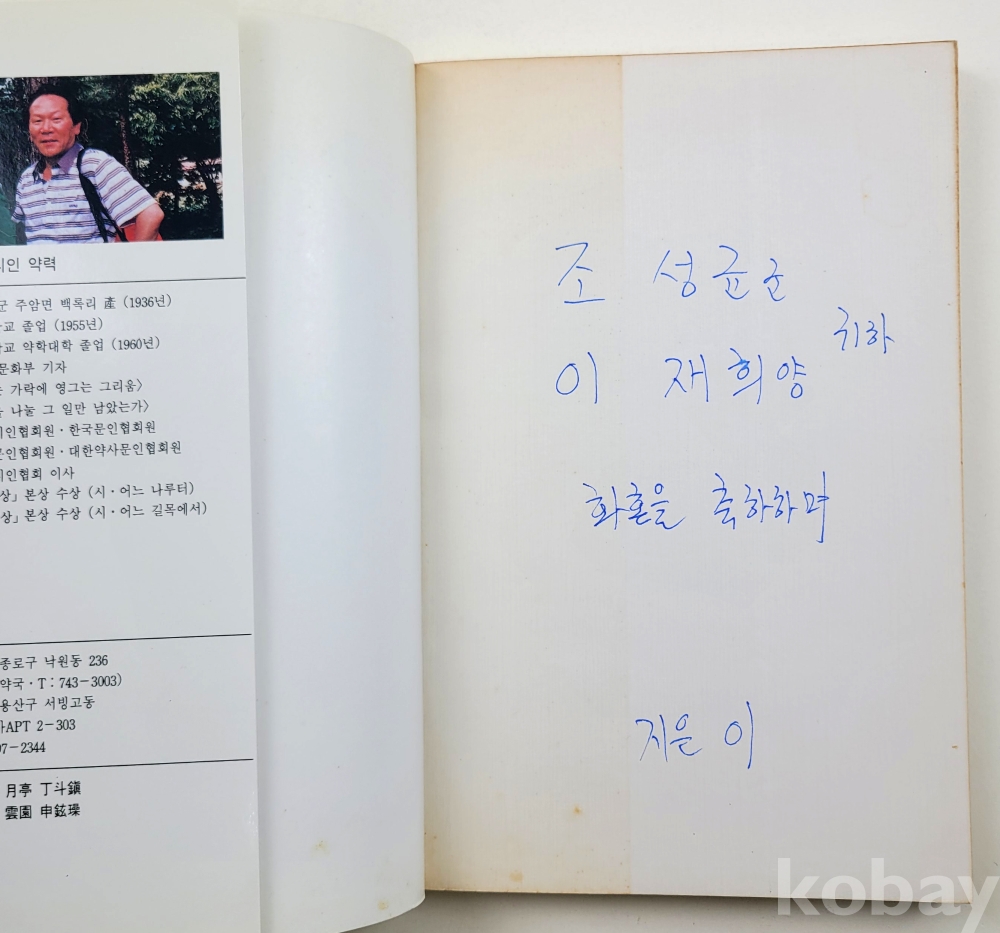 시인 약력
군 주암면 백록리 產 (1936년)
교 졸업 (1955년)
교 약학대학 졸업 (1960년)
문화부 기자
가락에 영그는 그리움〉
나눌 그 일만 남았는가〉
시인협회원·한국문인협회원
문인협회원·대한약사문인협회원
시인협회 이사
상」 본상 수상 (시·어느 나루터)
상」 본상 수상 (시·어느 길목에서)
종로구 낙원동 236
약국·T：743-3003)
용산구 서빙고동
APT 2-303
7-2344
月亭 丁斗鎭
雲園 申鉉璪
조 성균군
이 재희양 귀하
화혼을 축하하며
지은 이
kobay